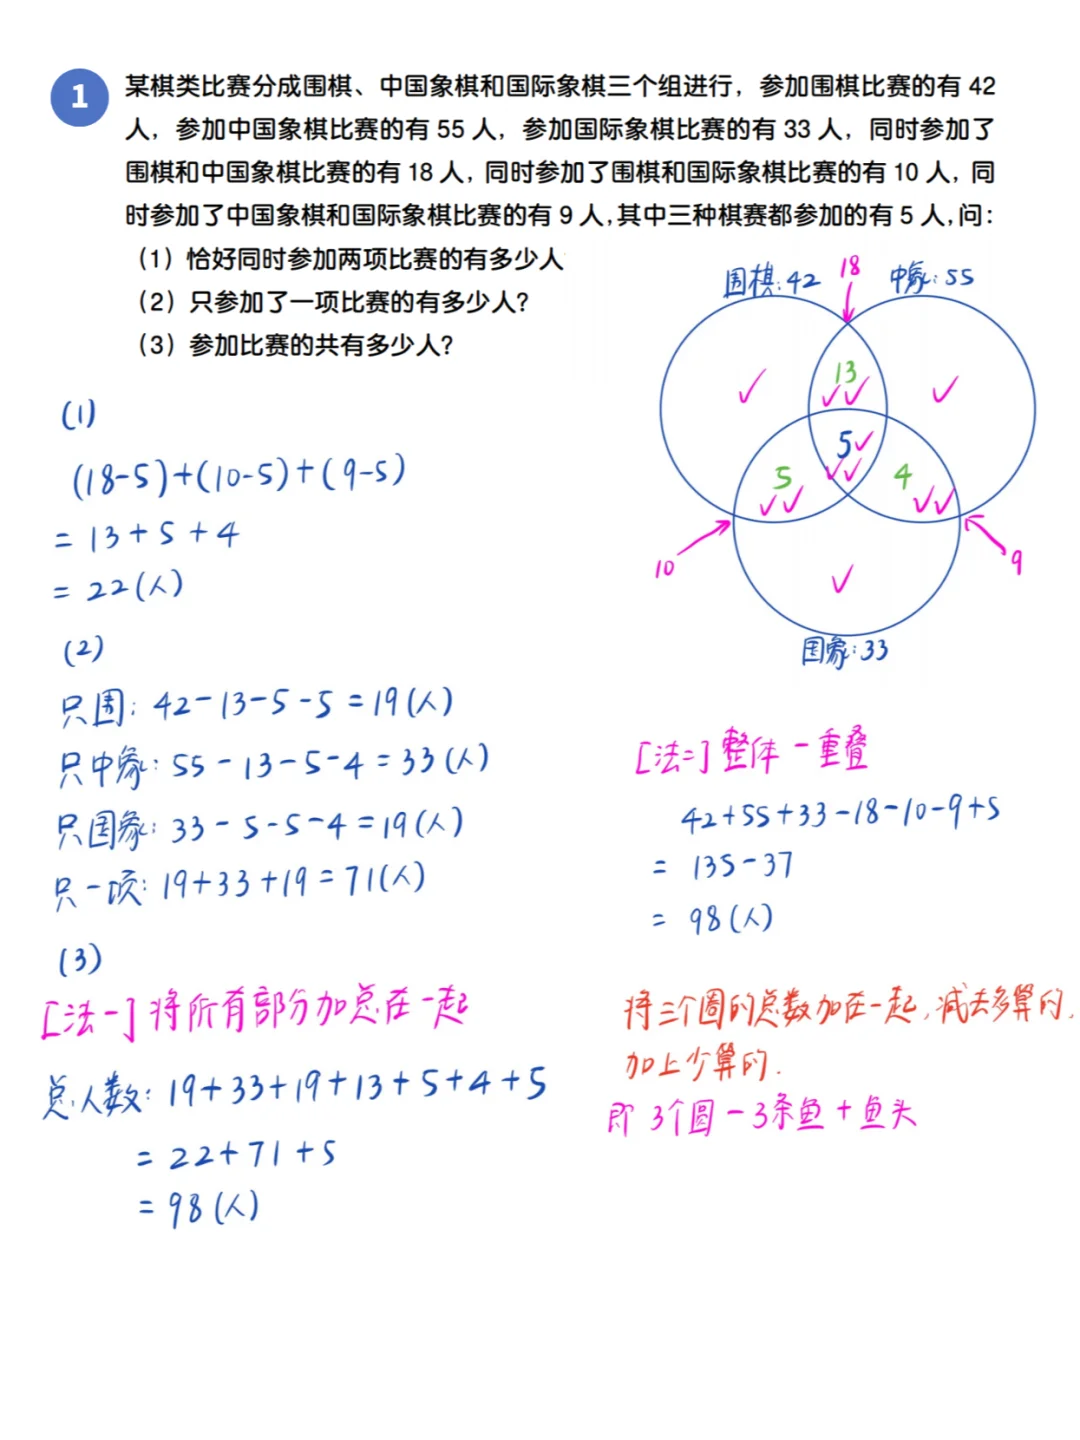 1
某棋类比赛分成围棋、中国象棋和国际象棋三个组进行，参加围棋比赛的有 42
人，参加中国象棋比赛的有 55 人，参加国际象棋比赛的有 33 人，同时参加了
围棋和中国象棋比赛的有 18 人，同时参加了围棋和国际象棋比赛的有 10 人，同
时参加了中国象棋和国际象棋比赛的有 9 人，其中三种棋赛都参加的有 5 人，问：
（1）恰好同时参加两项比赛的有多少人
（2）只参加了一项比赛的有多少人？
（3）参加比赛的共有多少人？
围棋:42
18
中象:55
13
5
5
4
10
9
国象:33
(1)
(18-5)+(10-5)+(9-5)
= 13+5+4
= 22(人)
(2)
只围: 42-13-5-5=19(人)
只中象: 55-13-5-4=33(人)
只国象: 33-5-5-4=19(人)
只一项: 19+33+19=71(人)
(3)
[法一]将所有部分加总在一起
总人数: 19+33+19+13+5+4+5
= 22+71+5
= 98(人)
[法二]整体-重叠
42+55+33-18-10-9+5
= 135-37
= 98(人)
将三个圆的总数加在一起,减去多算的,
加上少算的.
即 3个圆-3条鱼+鱼头